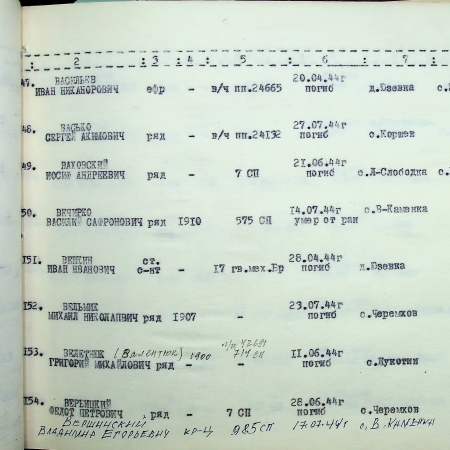 : 2 : 3 : 4 : 5 : 6 : 7 :
47. ВАСИЛЬЕВ 20.04.44г
ИВАН НИКАНОРОВИЧ ефр - в/ч пп.24665 погиб д.Юзевка
48. ВАСЬКО 27.07.44г
СЕРГЕЙ АКИМОВИЧ ряд - в/ч пп.24132 погиб с.Коршев
49. ВАХОВСКИЙ 21.06.44г
ИОСИФ АНДРЕЕВИЧ ряд - 7 СП погиб с.Л-Слободка с.
50. ВЕЧИРКО 14.07.44г с.В-Каменка
ВАСИЛИЙ САФРОНОВИЧ ряд 1910 575 СП умер от ран
151. ВЕНКИН ст. 28.04.44г
ИВАН ИВАНОВИЧ с-нт - 17 гв.мех.Бр погиб д.Юзевка
152. ВЕЛЬМИК 23.07.44г
МИХАИЛ НИКОЛАПВИЧ ряд 1907 - погиб с.Черемхов
153. ВЕЛЕТНЮК (Валентюк) 1900 п/п 42681 714 сп 11.06.44г
ГРИГОРИЙ МИХАЙЛОВИЧ ряд - - погиб с.Кукотин
154. ВЕРБИЦКИЙ 28.06.44г
ФЕДОТ ПЕТРОВИЧ ряд - 7 СП погиб с.Черемхов
ВЕРШИНСКИЙ
ВЛАДИМИР ЕГОРЬЕВИЧ кр-ц 985 сп 17.07.44г с.В.Каменка